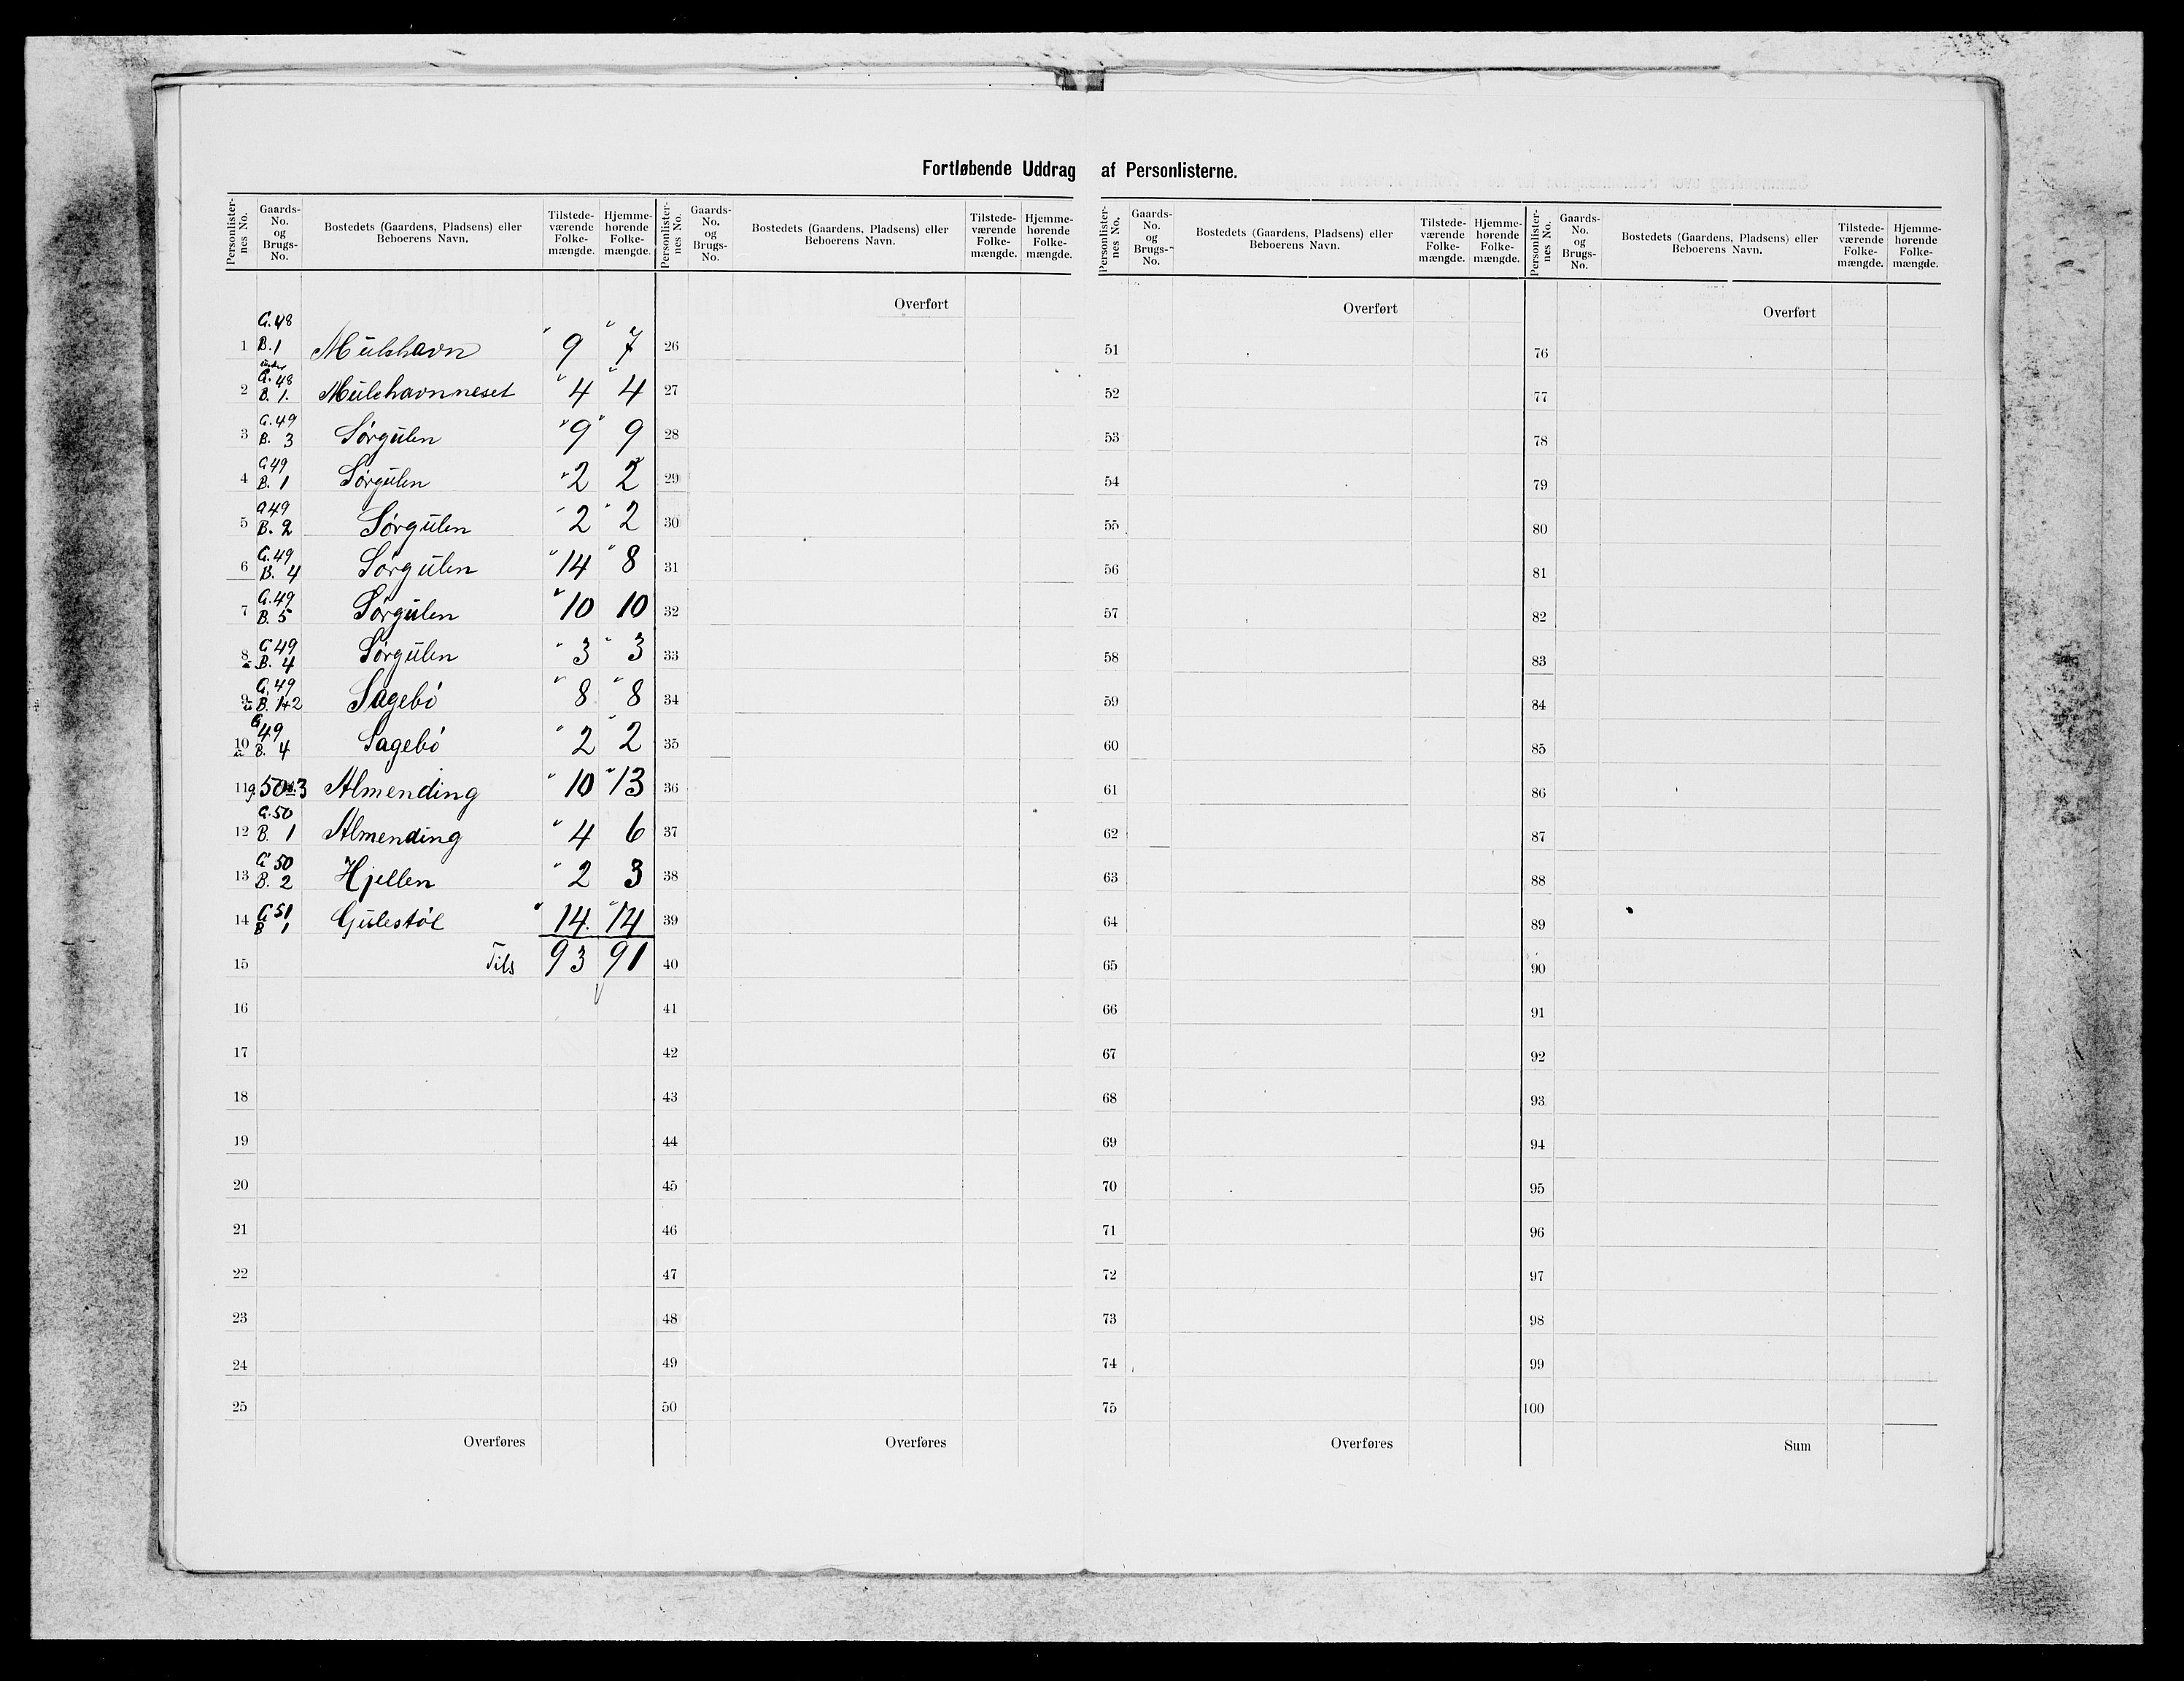 Fortløbende Uddrag af Personlisterne.
Personlister-nes No. | Gaards-No. og Brugs-No. | Bostedets (Gaardens, Pladsens) eller Beboerens Navn. | Tilstede-værende Folke-mængde. | Hjemme-hørende Folke-mængde.
1 G. 48 B. 1 Mülehavn " 9 " 7
2 under G. 48 B. 1. Mülehavnneset " 4 " 4
3 G. 49 B. 3 Sørgülen " 9 " 9
4 G 49 B. 1 Sørgülen " 2 2
5 G 49 B. 2 Sørgülen " 2 " 2
6 G. 49 B. 4 Sørgülen " 14 " 8
7 G. 49 B. 5 Sørgülen " 10 10
8 u G 49 B. 4 Sørgülen " 3 " 3
9 u G. 49 B. 1+2 Sagebö " 8 " 8
10 u G 49 B. 4 Sagebö " 2 " 2
11 g. 50 3 Almending " 10 " 13
12 G. 50 B. 1 Almending " 4 6
13 G 50 B. 2 Hjellen " 2 3
14 G 51 B 1 Gülestöl " 14. " 14
15 Tils 93 91
16
17
18
19
20
21
22
23
24
25
Overføres
Personlister-nes No. | Gaards-No. og Brugs-No. | Bostedets (Gaardens, Pladsens) eller Beboerens Navn. | Tilstede-værende Folke-mængde. | Hjemme-hørende Folke-mængde.
Overført
26
27
28
29
30
31
32
33
34
35
36
37
38
39
40
41
42
43
44
45
46
47
48
49
50
Overføres
Personlister-nes No. | Gaards-No. og Brugs-No. | Bostedets (Gaardens, Pladsens) eller Beboerens Navn. | Tilstede-værende Folke-mængde. | Hjemme-hørende Folke-mængde.
Overført
51
52
53
54
55
56
57
58
59
60
61
62
63
64
65
66
67
68
69
70
71
72
73
74
75
Overføres
Personlister-nes No. | Gaards-No. og Brugs-No. | Bostedets (Gaardens, Pladsens) eller Beboerens Navn. | Tilstede-værende Folke-mængde. | Hjemme-hørende Folke-mængde.
Overført
76
77
78
79
80
81
82
83
84
85
86
87
88
89
90
91
92
93
94
95
96
97
98
99
100
Sum